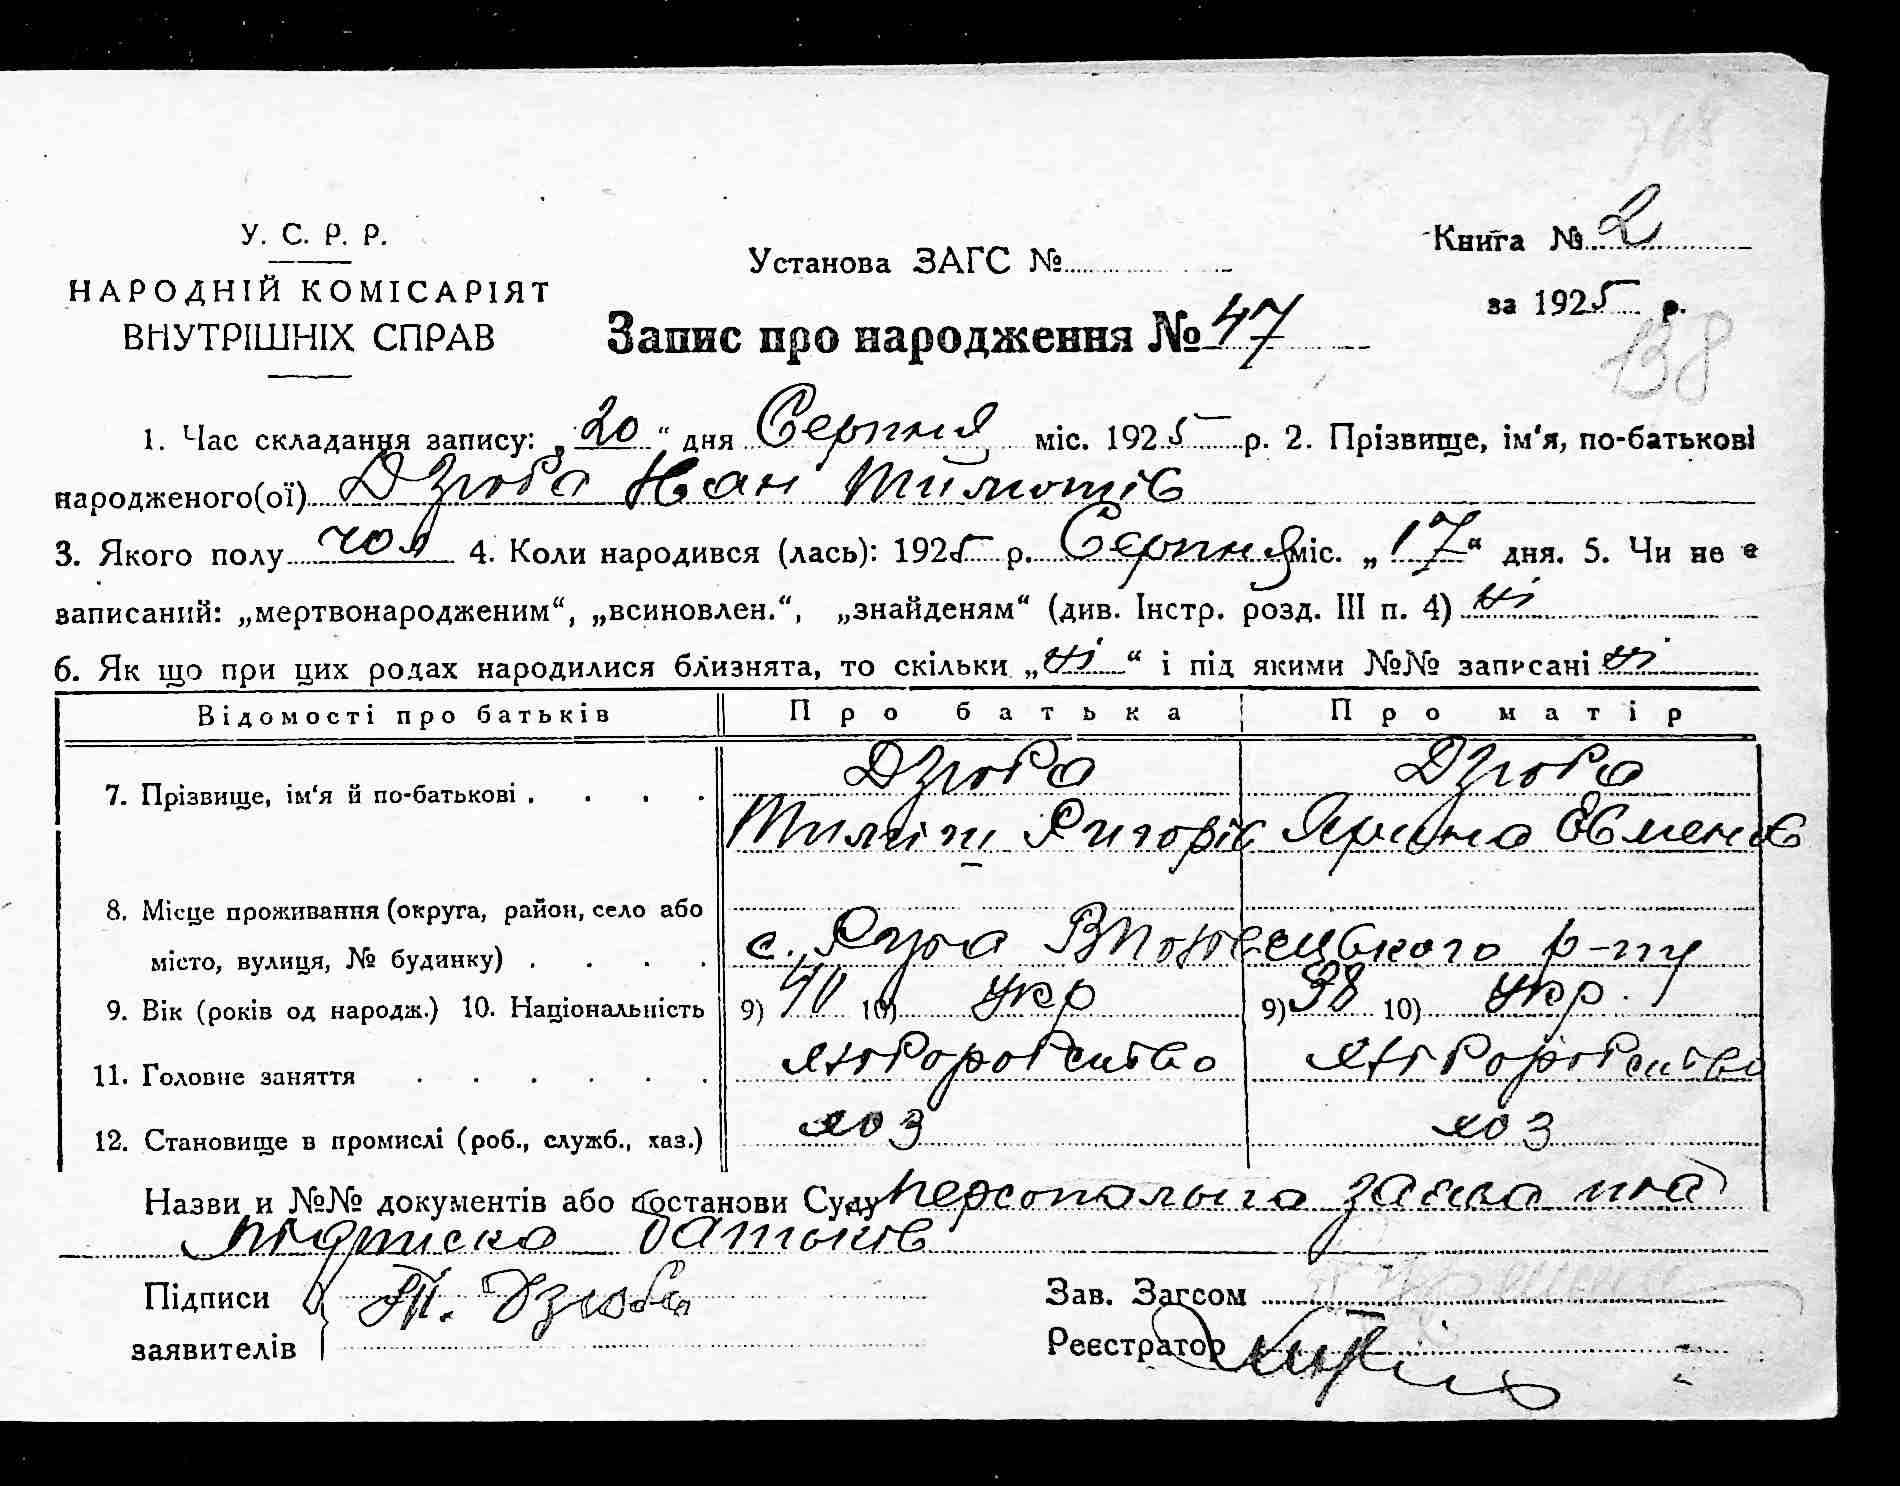 У. С. Р. Р.
НАРОДНІЙ КОМІСАРІЯТ
ВНУТРІШНІХ СПРАВ
Установа ЗАГС №
Книга № 2
за 1925 р.
138
Запис про народження № 47
1. Час складання запису: „20“ дня Серпня міс. 1925 р. 2. Прізвище, ім'я, по-батькові
народженого(ої) Дзюба Иван Тимотів
3. Якого полу чол 4. Коли народився (лась): 1925 р. Серпня міс. „17“ дня. 5. Чи не є
записаний: „мертвонародженим“, „всиновлен.“, „знайденям“ (див. Інстр. розд. III п. 4) ні
6. Як що при цих родах народилися близнята, то скільки „ні“ і під якими №№ записані ні
Відомості про батьків Про батька Про матір
7. Прізвище, ім'я й по-батькові . . . . Дзюба Дзюба
Григорів Ярина Овменов
8. Місце проживання (округа, район, село або
місто, вулиця, № будинку) . . . . с. р-ну
9. Вік (років од народж.) 10. Національність 9) 40 10) укр 9) 38 10) укр.
11. Головне заняття . . . . . . хліборобство хліборобство
12. Становище в промислі (роб., служб., хаз.) хоз хоз
Назви и №№ документів або постанови Суду персональна заява та
підписка батьків
Підписи
заявителів
Т. Дзюба
Зав. Загсом
Реєстратор